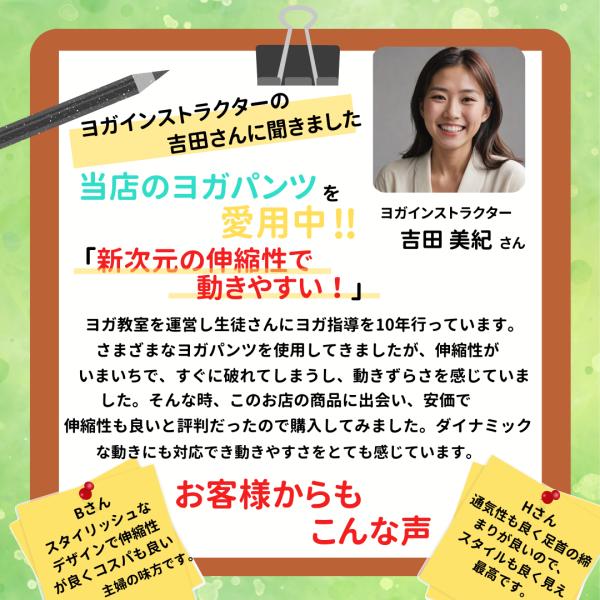 ヨガインストラクターの
吉田さんに聞きました
当店のヨガパンツを
愛用中!!
「新次元の伸縮性で
動きやすい！」
ヨガインストラクター
吉田 美紀 さん
ヨガ教室を運営し生徒さんにヨガ指導を10年行っています。
さまざまなヨガパンツを使用してきましたが、伸縮性が
いまいちで、すぐに破れてしまうし、動きずらさを感じていま
した。そんな時、このお店の商品に出会い、安価で
伸縮性も良いと評判だったので購入してみました。ダイナミック
な動きにも対応でき動きやすさをとても感じています。
お客様からも
こんな声
Bさん
スタイリッシュな
デザインで伸縮性
が良くコスパも良い
主婦の味方です。
Hさん
通気性も良く足首の締
まりが良いので、
スタイルも良く見え
最高です。